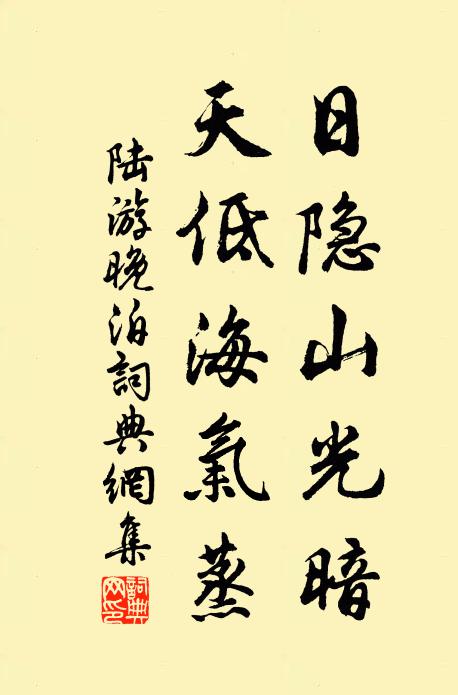 日隐山光暗
天低海氣蒸
陆游晚泊詞典網集
詞典